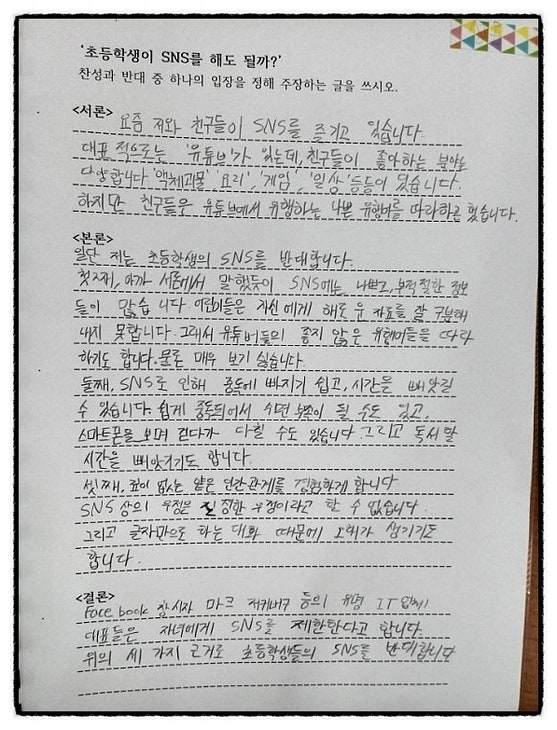 '초등학생이 SNS를 해도 될까?'
찬성과 반대 중 하나의 입장을 정해 주장하는 글을 쓰시오.
<서론>
요즘 저와 친구들이 SNS를 즐기고 있습니다.
대표적으로는 '유튜브'가 있는데, 친구들이 좋아하는 분야도
다양합니다. '액체괴물', '요리', '게임', '일상' 등등이 있습니다.
하지만 친구들은 유튜브에서 유행하는 나쁜 유행어를 따라하곤 했습니다.
<본론>
일단 저는 초등학생의 SNS를 반대합니다.
첫째, 아까 서론에서 말했듯이 SNS에는 나쁘고, 부적절한 정보
들이 많습니다. 어린이들은 자신에게 해로운 자료를 잘 구분해
내지 못합니다. 그래서 유튜버들의 좋지 않은 유행어들을 따라
하기도 합니다. 물론 매우 보기 싫습니다.
둘째, SNS로 인해 중독에 빠지기 쉽고, 시간을 빼앗길
수 있습니다. 쉽게 중독되어서 수면 부족이 될 수도 있고,
스마트폰을 보며 걷다가 다칠 수도 있습니다. 그리고 독서할
시간을 빼앗기기도 합니다.
셋째, 깊이 없는 얕은 인간관계를 경험하게 합니다.
SNS 상의 우정은 진정한 우정이라고 할 수 없습니다.
그리고 글자만으로 하는 대화 때문에 오해가 생기기도
합니다.
<결론>
Face book 창시자 마크 저커버그 등의 유명 IT업체
대표들은 자녀에게 SNS를 제한한다고 합니다.
위의 세 가지 근거로 초등학생들의 SNS를 반대합니다